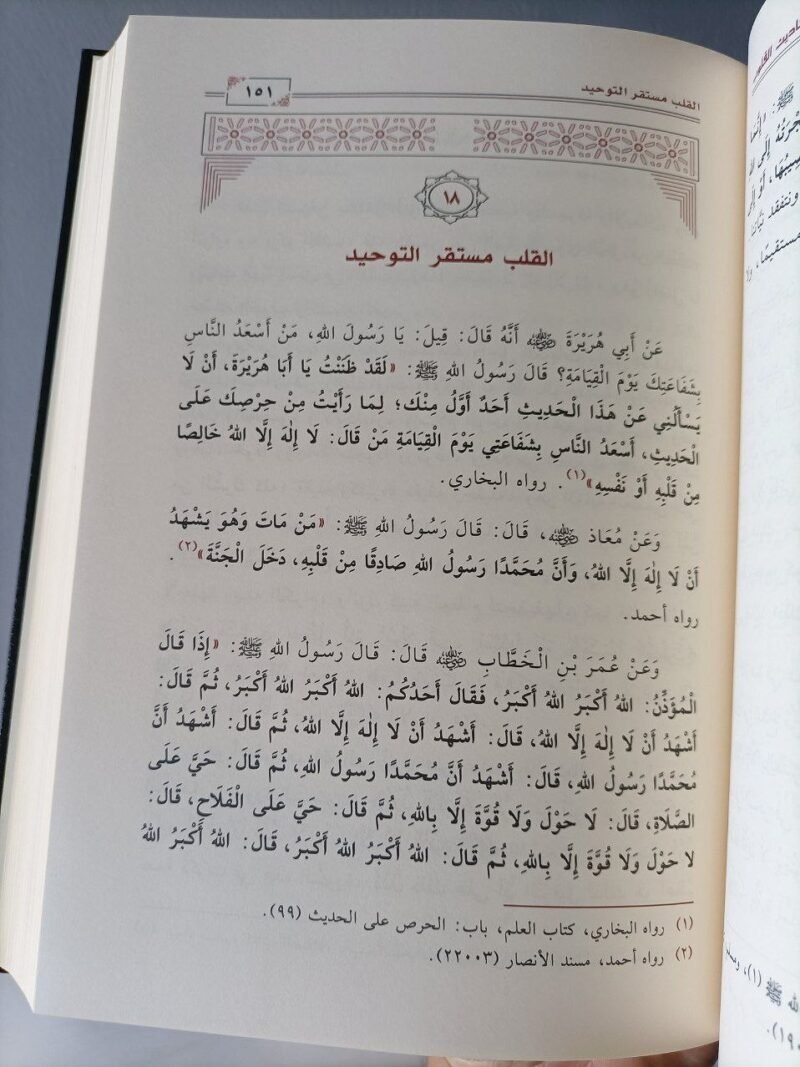 القلب مستقر التوحيد
١٥١
١٨
القلب مستقر التوحيد
عَنْ أَبِي هُرَيْرَةَ ﵁ أَنَّهُ قَالَ: قِيلَ: يَا رَسُولَ اللهِ، مَنْ أَسْعَدُ النَّاسِ
بِشَفَاعَتِكَ يَوْمَ الْقِيَامَةِ؟ قَالَ رَسُولُ اللهِ ﷺ: «لَقَدْ ظَنَنْتُ يَا أَبَا هُرَيْرَةَ، أَنْ لَا
يَسْأَلُنِي عَنْ هَذَا الْحَدِيثِ أَحَدٌ أَوَّلُ مِنْكَ؛ لِمَا رَأَيْتُ مِنْ حِرْصِكَ عَلَى
الْحَدِيثِ، أَسْعَدُ النَّاسِ بِشَفَاعَتِي يَوْمَ الْقِيَامَةِ مَنْ قَالَ: لَا إِلٰهَ إِلَّا اللهُ خَالِصًا
مِنْ قَلْبِهِ أَوْ نَفْسِهِ»(١). رواه البخاري.
وَعَنْ مُعَاذٍ ﵁، قَالَ: قَالَ رَسُولُ اللهِ ﷺ: «مَنْ مَاتَ وَهُوَ يَشْهَدُ
أَنْ لَا إِلٰهَ إِلَّا اللهُ، وَأَنَّ مُحَمَّدًا رَسُولُ اللهِ صَادِقًا مِنْ قَلْبِهِ، دَخَلَ الْجَنَّةَ»(٢).
رواه أحمد.
وَعَنْ عُمَرَ بْنِ الْخَطَّابِ ﵁ قَالَ: قَالَ رَسُولُ اللهِ ﷺ: «إِذَا قَالَ
الْمُؤَذِّنُ: اللهُ أَكْبَرُ اللهُ أَكْبَرُ، فَقَالَ أَحَدُكُمُ: اللهُ أَكْبَرُ اللهُ أَكْبَرُ، ثُمَّ قَالَ:
أَشْهَدُ أَنْ لَا إِلٰهَ إِلَّا اللهُ، قَالَ: أَشْهَدُ أَنْ لَا إِلٰهَ إِلَّا اللهُ، ثُمَّ قَالَ: أَشْهَدُ أَنَّ
مُحَمَّدًا رَسُولُ اللهِ، قَالَ: أَشْهَدُ أَنَّ مُحَمَّدًا رَسُولُ اللهِ، ثُمَّ قَالَ: حَيَّ عَلَى
الصَّلَاةِ، قَالَ: لَا حَوْلَ وَلَا قُوَّةَ إِلَّا بِاللهِ، ثُمَّ قَالَ: حَيَّ عَلَى الْفَلَاحِ، قَالَ:
لا حَوْلَ وَلَا قُوَّةَ إِلَّا بِاللهِ، ثُمَّ قَالَ: اللهُ أَكْبَرُ اللهُ أَكْبَرُ، قَالَ: اللهُ أَكْبَرُ اللهُ
(١) رواه البخاري، كتاب العلم، باب: الحرص على الحديث (٩٩).
(٢) رواه أحمد، مسند الأنصار (٢٢٠٠٣).